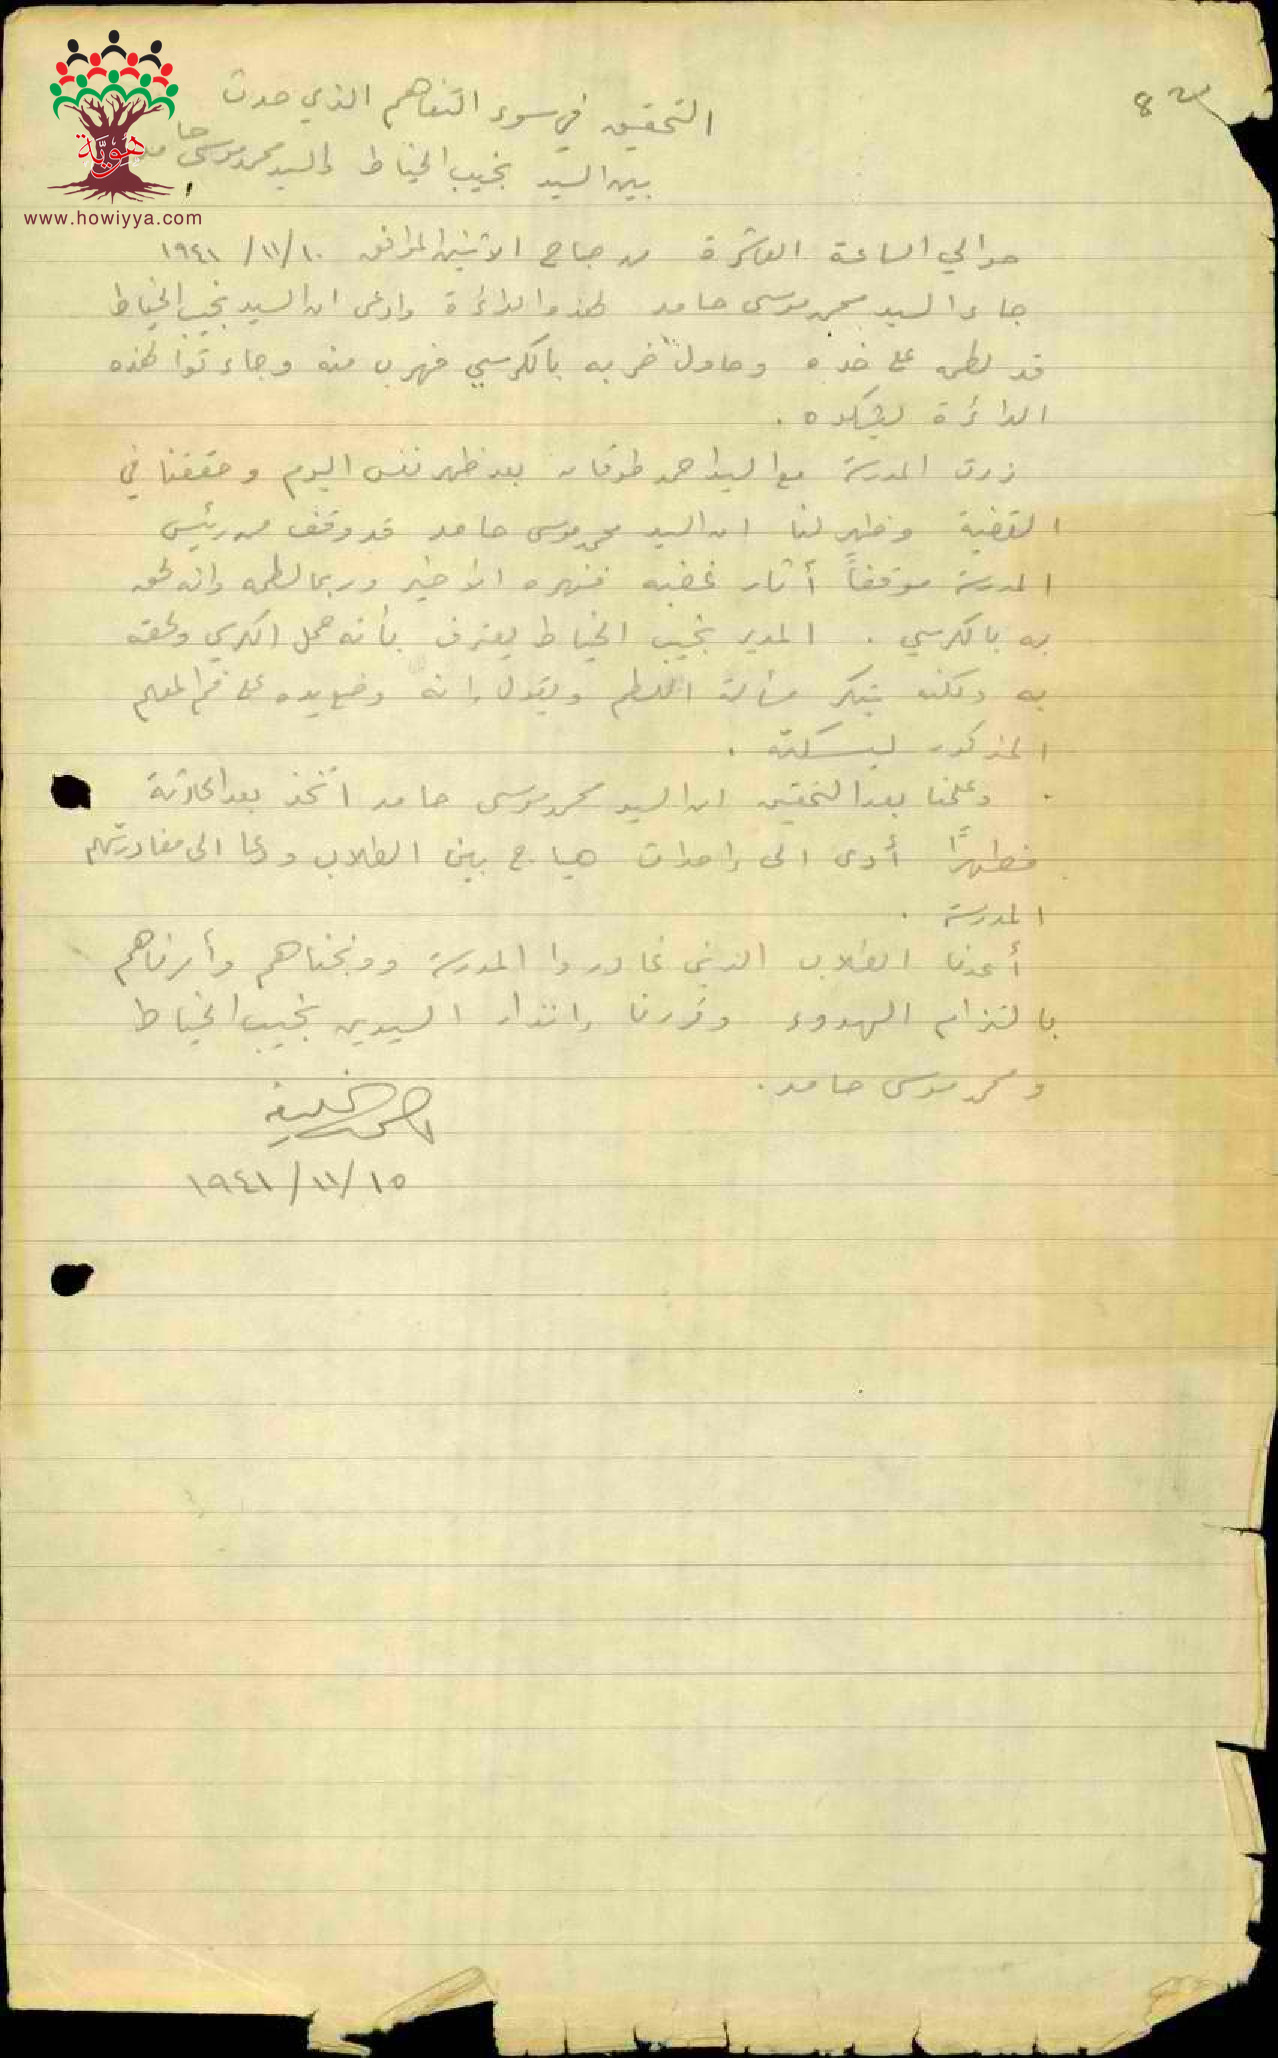 التحقيق في سوء التفاهم الذي حدث
بين السيد نجيب الخياط والسيد محمد موسى حامد
هويّة
www.howiyya.com
حوالي الساعة العاشرة من صباح الاثنين الموافق ١٠/١١/١٩٤١
جاء السيد محمد موسى حامد لهذه الدائرة وادعى ان السيد نجيب الخياط
قد لطمه على خده وحاول ضربه بالكرسي فهرب منه وجاء توا لهذه
الدائرة ليشكوه .
زرت المدرسة مع السيد احمد طوقان بعد ظهر نفس اليوم وحققنا في
القضية وظهر لنا ان السيد محمد موسى حامد قد وقف من رئيس
المدرسة موقفاً أثار غضبه فنهره الاخير وربما لطمه وانه لحق
به بالكرسي . المدير نجيب الخياط يعترف بأنه حمل الكرسي ولحقه
به ولكنه ينكر مسألة اللطم ويقول إنه وضع يده على فم المعلم
المذكور ليسكته .
. وعلمنا بعد التحقيق ان السيد محمد موسى حامد اتخذ بعد الحادثة
مظهرًا أدى الى إحداث هياج بين الطلاب ودعا الى مغادرتهم
المدرسة .
أعدنا الطلاب الذين غادروا المدرسة ووبخناهم وأمرناهم
بالتزام الهدوء وقررنا إنذار السيدين نجيب الخياط
ومحمد موسى حامد .
احمد خليفه
١٥/١١/١٩٤١